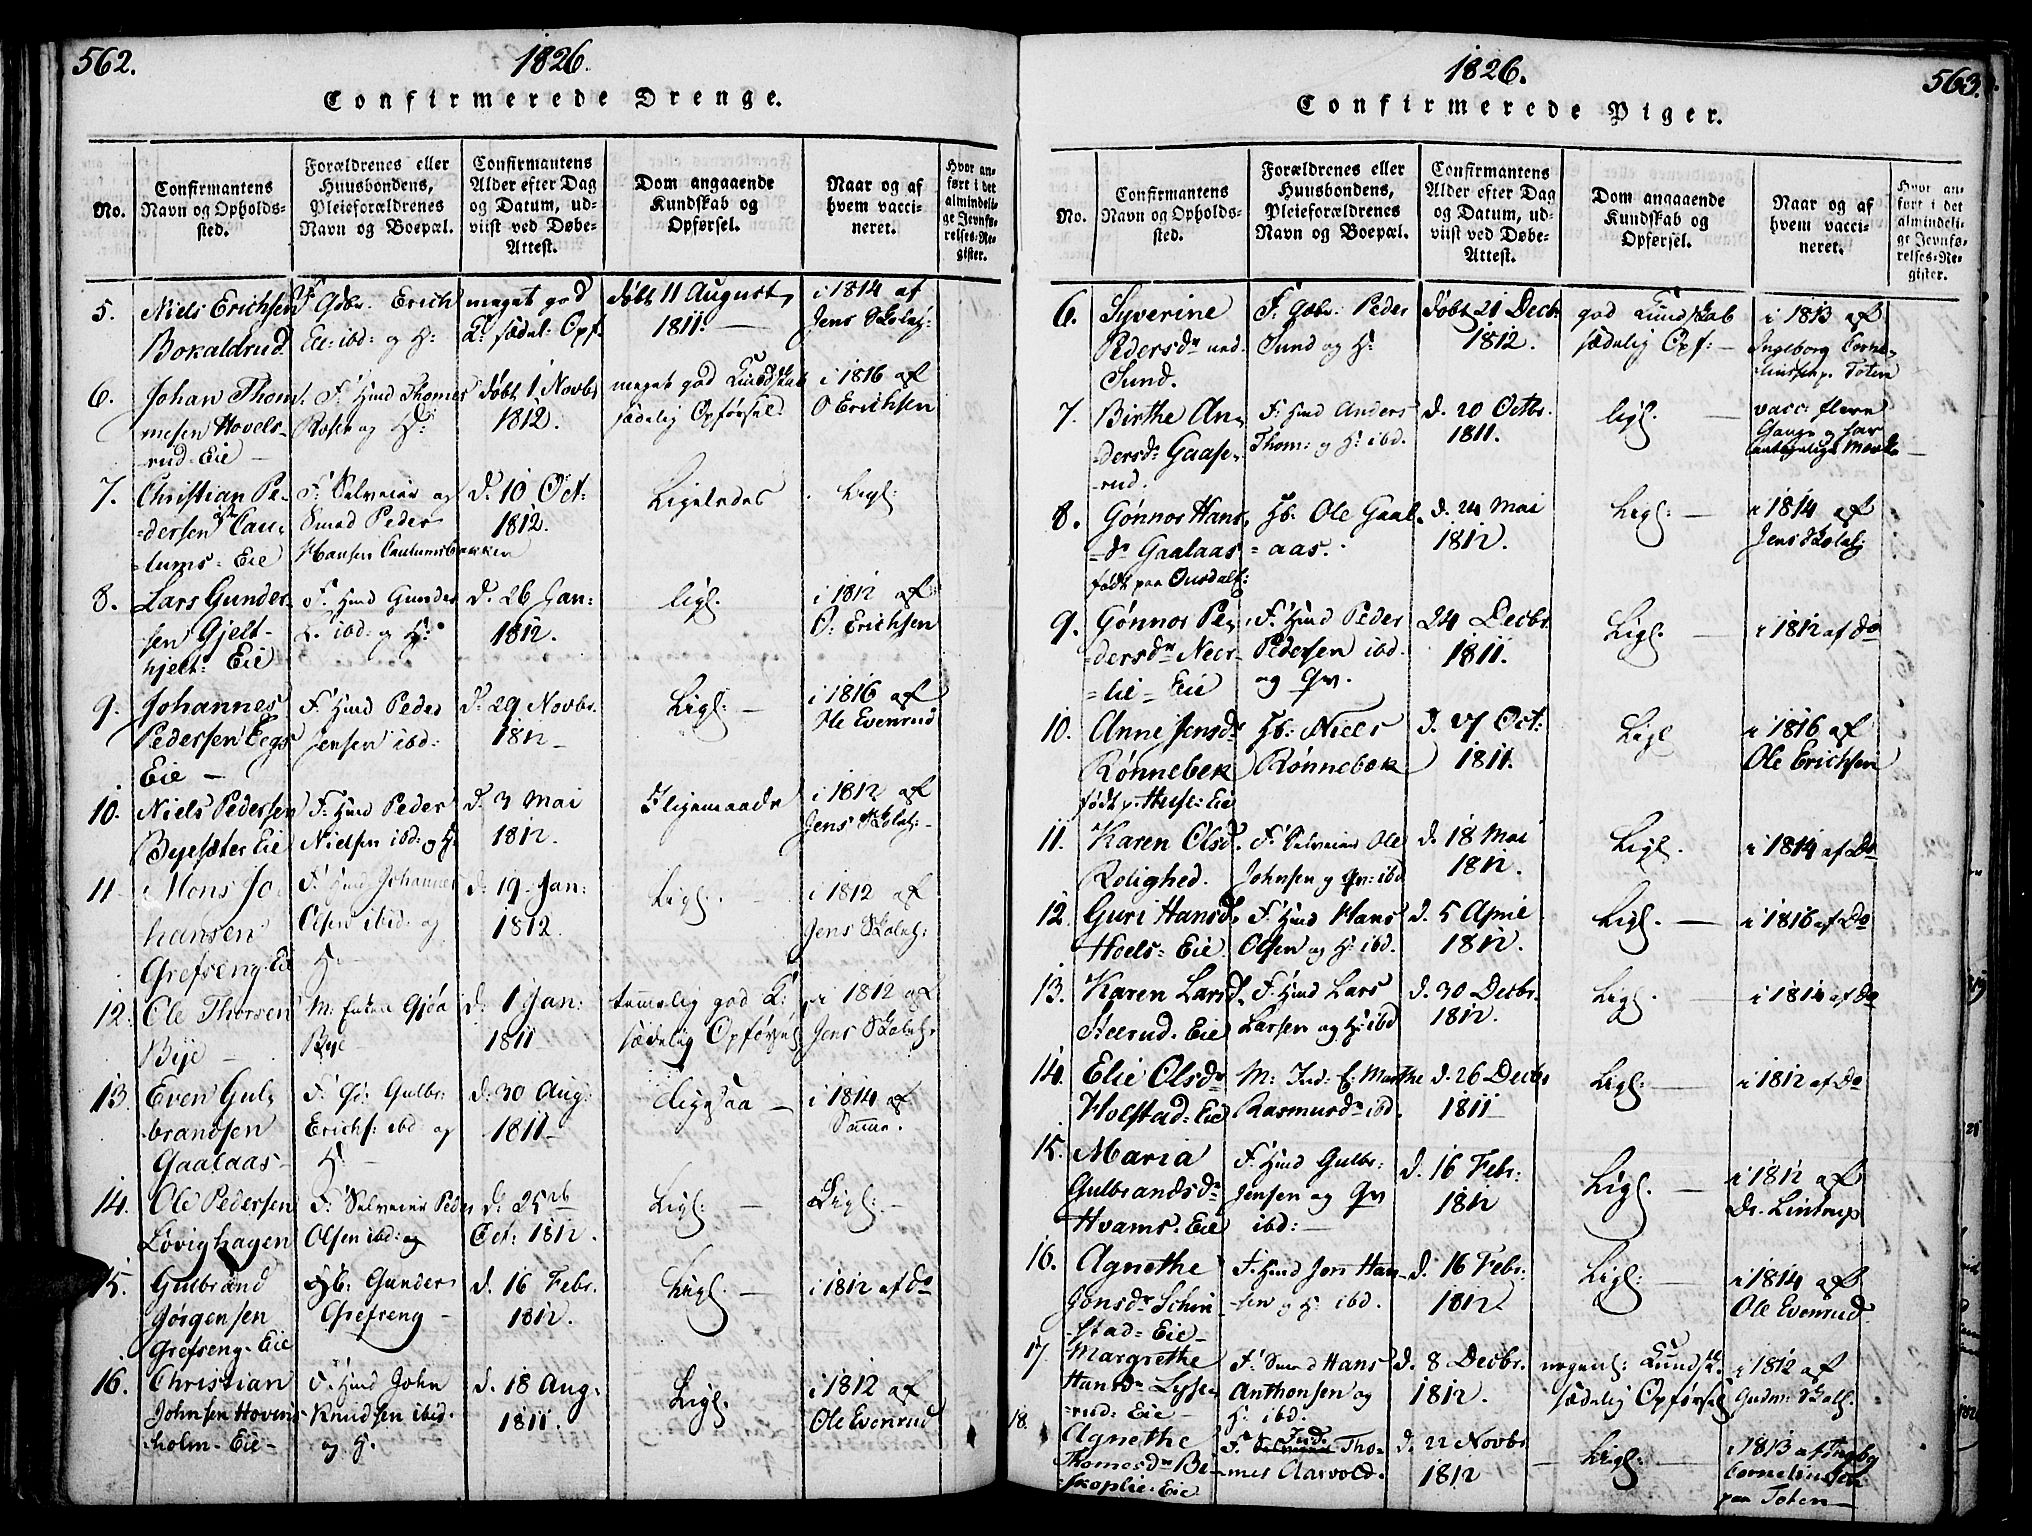 562.
1826.
Confirmerede Drenge.
No.
Confirmantens
Navn og Opholds-
sted.
Forældrenes eller
Huusbondens,
Pleieforældrenes
Navn og Boepæl.
Confirmantens
Alder efter Dag
og Datum, ud-
viist ved Døbe-
Attest.
Dom angaaende
Kundskab og
Opførsel.
Naar og af
hvem vacci-
neret.
Hvor an-
ført i det
almindeli-
ge Jevnfø-
relses-Re-
gister.
5.
Niels Erichsen
Bokaldrud
Erich
ibd: og H:
meget god
K: sædel: Opf.
døbt 11 August
1811.
i 1814 af
Jens Skoleh:
6.
Johan Thom-
mesen Hovels-
rud-Eie
F. Hmd Thomes
og H:
døbt 1 Novbr
1812.
meget god Kundskab
sædelig Opførsel
i 1816 af
O Erichsen
7.
Christian Pe-
dersen
lums-Eie
F: Selveier og
Smed Peder
Hansen
d. 10 Oct:
1812.
Ligeledes
Ligl:
8.
Lars Gunder-
sen Gjelt-
hjelt: Eie
F. Hmd Gunder
L. ibd: og H:
d. 26 Jan:
1812.
ligl.
i 1812 af
O: Erichsen
9.
Johannes
Pedersen Eegs
Eie
F. Hmd Peder
Jensen ibd:
d. 29 Novbr.
1812
Ligl:
i 1816 af
Ole Evenrud
10.
Niels Pedersen
Byesæter Eie
F. Hmd Peder
Nielsen ibd: og H:
d. 3 Mai
1812.
I ligemaade
i 1812 af
Jens Skoleh:
11
Mons Jo-
hansen
Grefseng-Eie
F. Hmd Johannes
Olsen ibid: og
H.
d. 19 Jan:
1812.
Ligl.
i 1812 af
Jens Skoleh:
12.
Ole Thorsen
Bye
M: Enken Gjøa
Bye
d. 1 Jan:
1811
temmelig god K:
sædelig Opførsel
i 1812 af
Jens Skoleh:
13.
Even Gul-
brandsen
Gaalaas
F. Gulbr:
Erichs: ibd og
H
d. 30 Aug:
1811
Ligesaa
i 1814 af
Samme.
14.
Ole Pedersen
Løvighagen
F. Selveier Peder
Olsen ibd: og
d. 25
Oct: 1812.
Ligl:
Ligl:
15.
Gulbrand
Jørgensen
Grefseng-Eie
Hb: Gunder
Grefseng
d. 16 Febr.
1812.
Ligl.
i 1812 af do
16.
Christian
Johnsen Hovens
holm-Eie
F. Hmd John
Knudsen ibid.
og H.
d. 18 Aug:
1811.
Ligl.
i 1812 af
Ole Evenrud
1826.
563.
Confirmerede Piger.
No.
Confirmantens
Navn og Opholds-
sted.
Forældrenes eller
Huusbondens,
Pleieforældrenes
Navn og Boepæl.
Confirmantens
Alder efter Dag
og Datum, ud-
viist ved Døbe-
Attest.
Dom angaaende
Kundskab og
Opførsel.
Naar og af
hvem vacci-
neret.
Hvor an-
ført i det
almindeli-
ge Jevnfø-
relses-Re-
gister.
6.
Syverine
Pedersdr ned.
Sund.
F. Gbr: Peder
Sund og H:
døbt 21 Decbr
1812.
god Kundskab
sædelig Opf:
i 1813 af
Ingeborg Corne-
Toten
7.
Birthe An-
dersdr Gaase-
rud.
F. Hmd Anders
Thom: og H: ibd.
d. 20 Octbr.
1811.
ligl.
vacc: flere
Gange og har
8.
Gønnor Hans-
dr Gaalaas
født paa
Hb. Ole Gaal-
aas.
d. 24 Mai
1812.
Ligl:
i 1814 af
Jens Skoleh:
9.
Gønnor Pe-
dersdr Neer-
lie-Eie
F. Hmd Peder
Pedersen ibd.
og Qv.
24 Decbr
1811.
Ligl.
i 1812 af do
10.
Anne Jensdr
Rønnebek
født p.
Hb: Niels
Rønnebek
d. 27 Oct:
1811.
Ligl
i 1816 af
Ole Erichsen
11.
Karen Olsd.
Rolighed.
F. Selveier Ole
Johnsen og Qv: ibd
d. 18 Mai
1812.
Ligl.
i 1814 af do
12.
Guri Hansd.
Hoels-Eie
F. Hmd Hans
Olsen og H: ibd.
d. 5 April
1812.
Ligl.
i 1816 af do
13.
Karen Larsd.
F. Hmd Lars
Larsen og H: ibd
d. 30 Decbr.
1812.
Ligl.
i 1814 af do
14.
Elie Olsdr
Holstad-Eie
M: Ind: E: Marthe
Rasmusdr ibd.
d. 26 Decbr
1811
Ligl:
i 1812 af do
15.
Maria
Gulbrandsdr
Hvams-Eie
F. Hmd Gulbr:
Jensen og Qv
ibd:
d. 16 Febr:
1812
Ligl.
i 1812 af
Dr. Lintrup
16.
Agnethe
Jonsdr Schin-
stad-Eie
F. Hmd Jon Han-
sen og H: ibd.
d. 16 Febr:
1812.
Ligl:
i 1814 af
Ole Evenrud
17.
Margrethe
Hansdr
rud: Eie
F. Smed Hans
Anthonsen og
H: ibd.
d. 8 Decbr.
1812.
Kundsk.
sædelig Opførsel
i 1812 af
Gudm: Skolh.
18.
Agnethe
Thomesdr Bi-
skoplie-Eie
F. Ind. Tho-
mes Aarvold.
d. 22 Novbr
1812
Ligl:
i 1813 af Ingbg
paa Toten